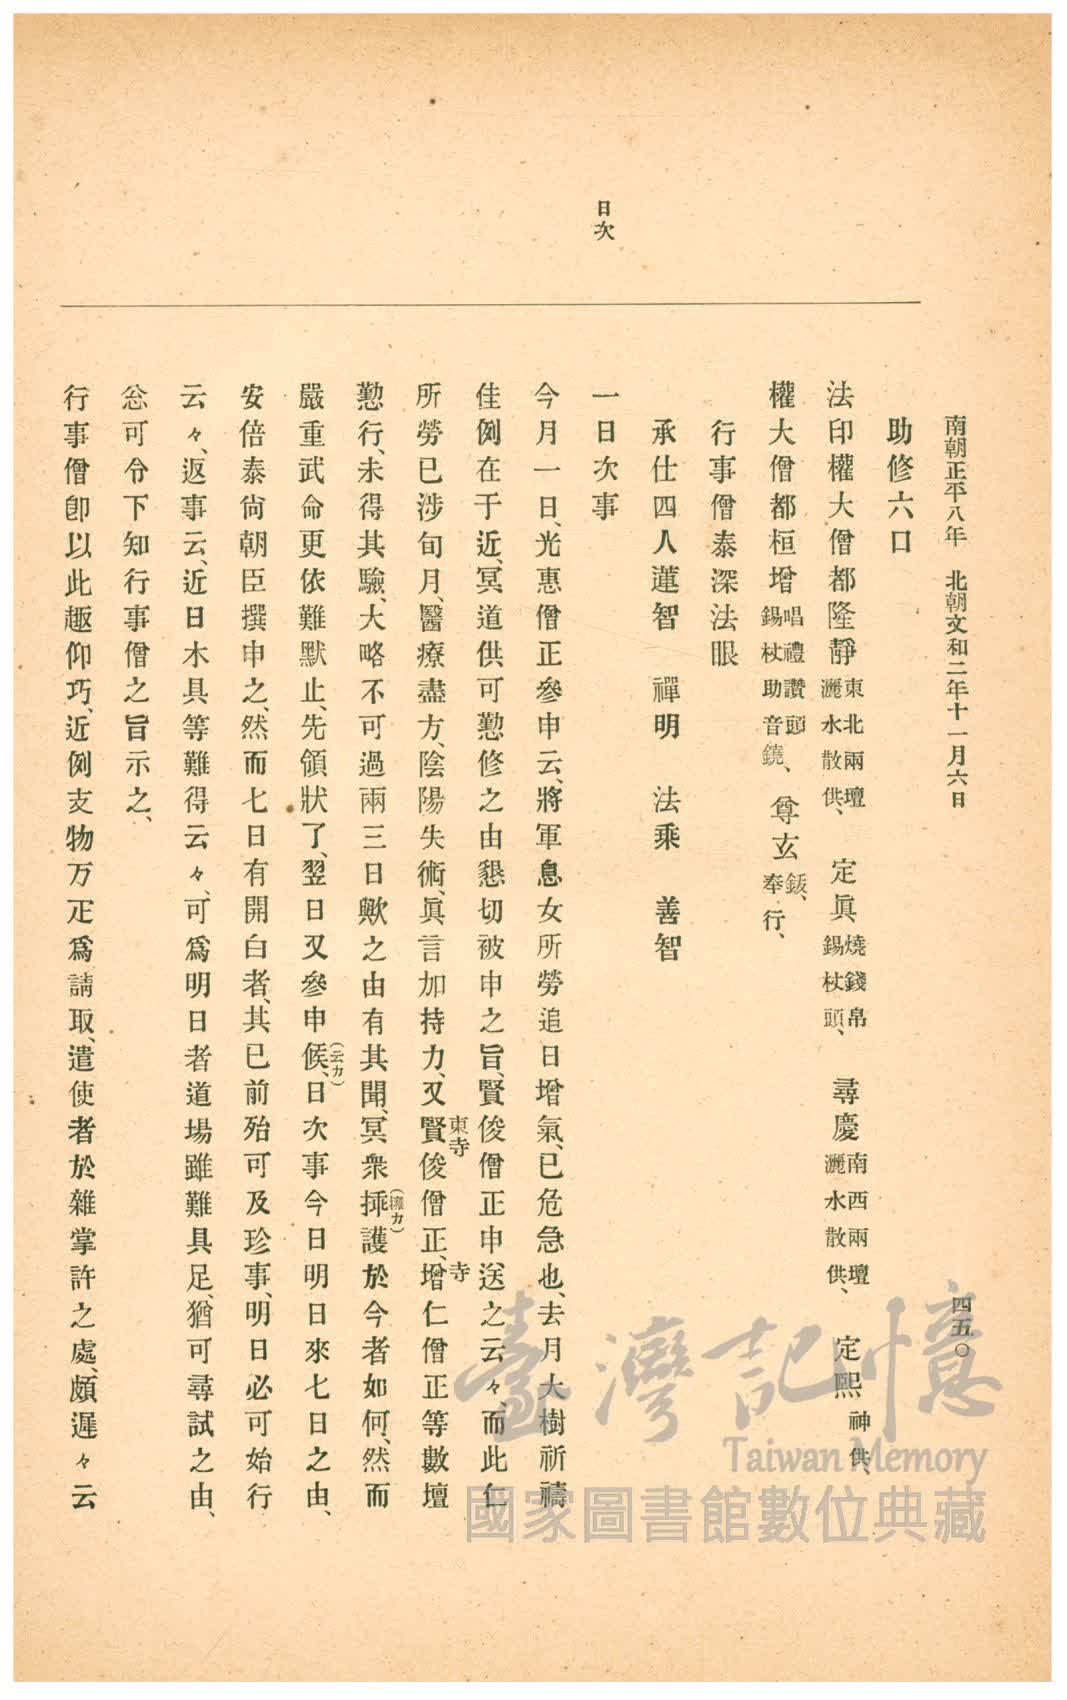 南朝正平八年 北朝文和二年十一月六日
四五〇
助修六口
法印權大僧都隆靜 東北兩壇灑水散供、 定眞 燒錢帛錫杖頭、 尋慶 南西兩壇灑水散供、 定熙 神供、
權大僧都桓增 唱禮讚頭錫杖助音鐃、 尊玄 鈸、奉行、
行事僧泰深法眼
承仕四人蓮智 禪明 法乘 善智
日次
一日次事
今月一日、光惠僧正參申云、將軍息女所勞追日增氣、已危急也、去月大樹祈禱
佳例在于近、冥道供可懃修之由懇切被申之旨、賢俊僧正申送之云々、而此仁
所勞已涉旬月、醫療盡方、陰陽失術、眞言加持力、又賢俊僧正、增仁僧正等數壇
東寺
寺
懃行、未得其驗、大略不可過兩三日歟之由有其聞、冥衆揷護於今者如何、然而
(擁カ)
嚴重武命更依難默止、先領狀了、翌日又參申候、日次事今日明日來七日之由、
(云カ)
安倍泰尙朝臣撰申之、然而七日有開白者、其已前殆可及珍事、明日必可始行
云々、返事云、近日木具等難得云々、可爲明日者道場雖難具足、猶可尋試之由、
忩可令下知行事僧之旨示之、
行事僧卽以此趣仰巧、近例支物万疋爲請取、遣使者於雜掌許之處、頗遲々云
臺灣記憶
Taiwan Memory
國家圖書館數位典藏